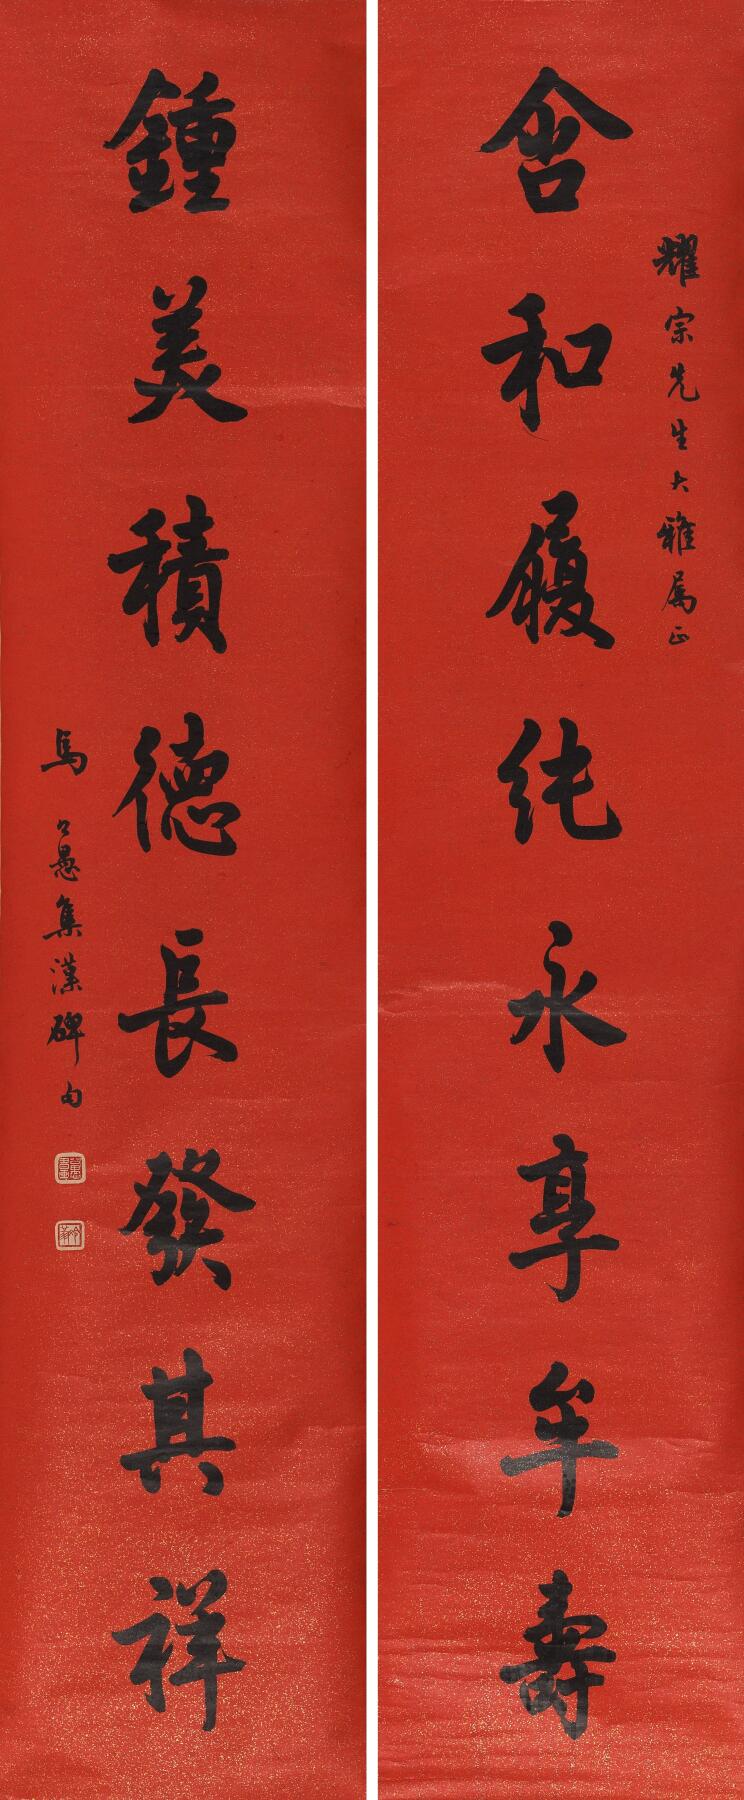 耀宗先生大雅属正
含和履純永享牟壽
鍾美積德長發其祥
馬公愚集漢碑句